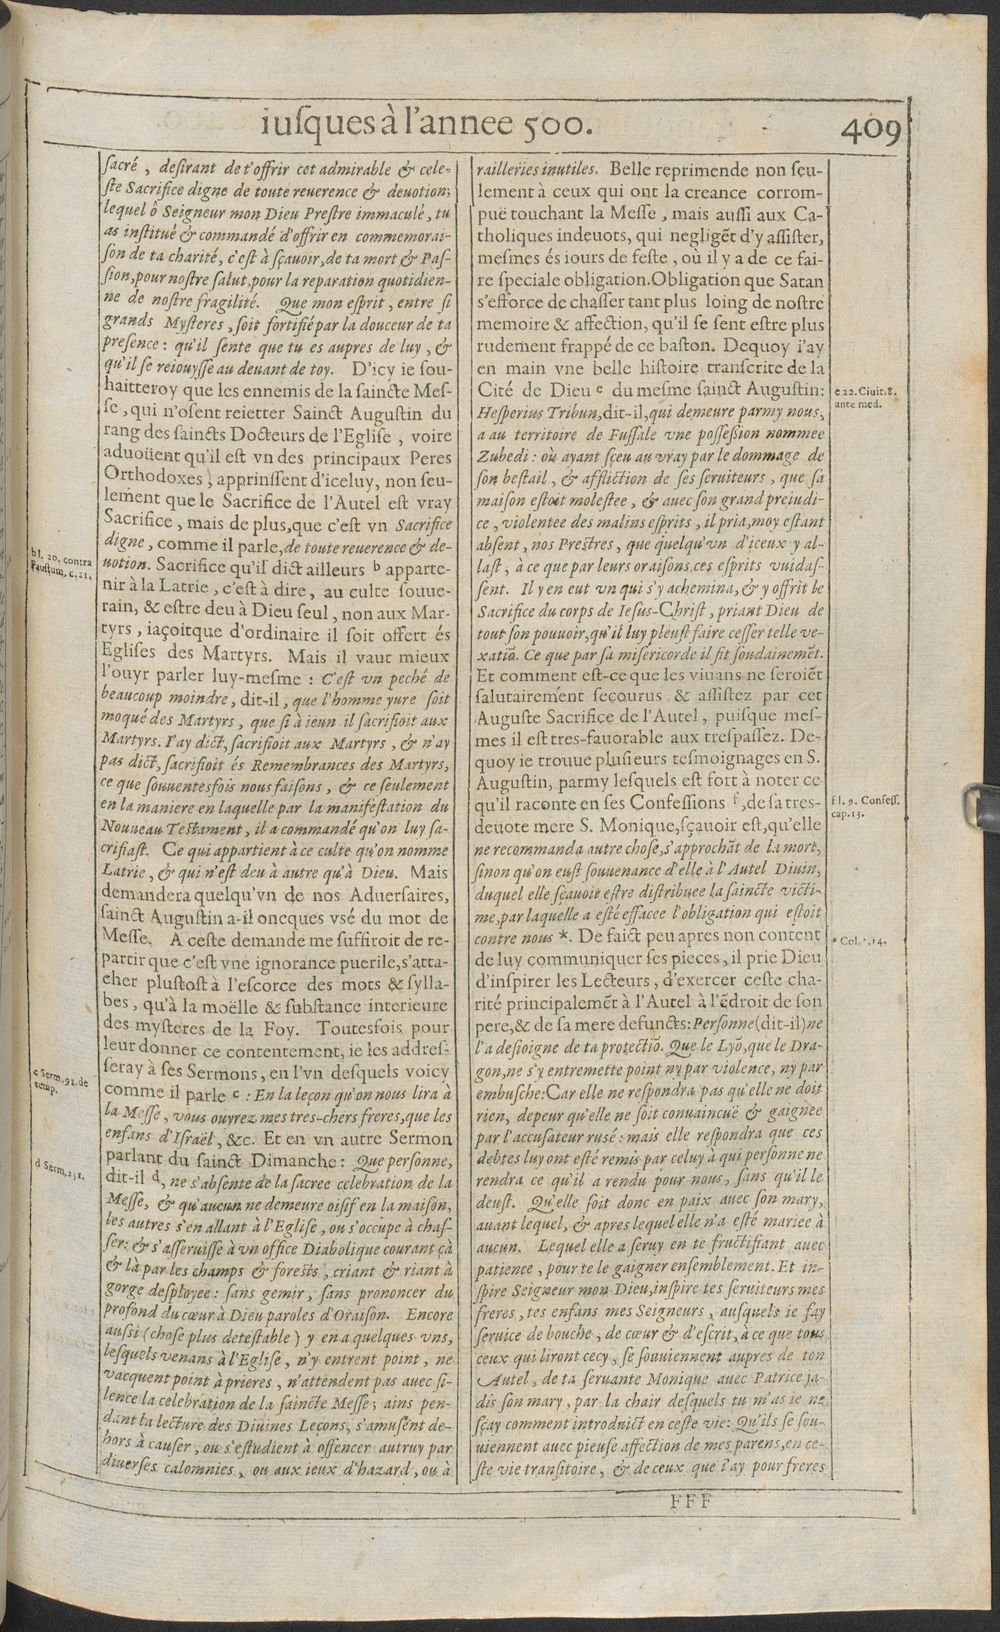 iusques à l'annee 500. 409
sacré, desirant de t'offrir cet admirable & cele-
ste Sacrifice digne de toute reuerence & deuotion;
lequel ô Seigneur mon Dieu Prestre immaculé, tu
as institué & commandé d'offrir en commemorai-
son de ta charité, c'est à sçauoir, de ta mort & Pas-
sion, pour nostre salut, pour la reparation quotidien-
ne de nostre fragilité. Que mon esprit, entre si
grands Mysteres, soit fortifié par la douceur de ta
presence: qu'il sente que tu es aupres de luy, &
qu'il se reiouysse au deuant de toy. D'icy ie sou-
haitteroy que les ennemis de la saincte Mes-
se, qui n'osent reietter Sainct Augustin du
rang des saincts Docteurs de l'Eglise, voire
aduoüent qu'il est vn des principaux Peres
Orthodoxes, apprinssent d'iceluy, non seu-
lement que le Sacrifice de l'Autel est vray
Sacrifice, mais de plus, que c'est vn Sacrifice
digne, comme il parle, de toute reuerence & de-
uotion. Sacrifice qu'il dict ailleurs b apparte-
nir à la Latrie, c'est à dire, au culte souue-
rain, & estre deu à Dieu seul, non aux Mar-
tyrs, iaçoitque d'ordinaire il soit offert és
Eglises des Martyrs. Mais il vaut mieux
l'ouyr parler luy-mesme: C'est vn peché de
beaucoup moindre, dit-il, que l'homme yure soit
moqué des Martyrs, que si à ieun il sacrifioit aux
Martyrs. I'ay dict, sacrifioit aux Martyrs, & n'ay
pas dict, sacrifioit és Remembrances des Martyrs,
ce que souuentesfois nous faisons, & ce seulement
en la maniere en laquelle par la manifestation du
Nouueau Testament, il a commandé qu'on luy sa-
crifiast. Ce qui appartient à ce culte qu'on nomme
Latrie, & qui n'est deu à autre qu'à Dieu. Mais
demandera quelqu'vn de nos Aduersaires,
sainct Augustin a-il oncques vsé du mot de
Messe. A ceste demande me suffiroit de re-
partir que c'est vne ignorance puerile, s'atta-
cher plustost à l'escorce des mots & sylla-
bes, qu'à la moëlle & substance interieure
des mysteres de la Foy. Toutesfois pour
leur donner ce contentement, ie les addres-
seray à ses Sermons, en l'vn desquels voicy
comme il parle c: En la leçon qu'on nous lira à
la Messe, vous ouyrez mes tres-chers freres, que les
enfans d'Israël, &c. Et en vn autre Sermon
parlant du sainct Dimanche: Que personne,
dit-il d, ne s'absente de la sacree celebration de la
Messe, & qu'aucun ne demeure oisif en la maison,
les autres s'en allant à l'Eglise, ou s'occupe à chas-
ser: & s'asseruisse à vn office Diabolique courant çà
& là par les champs & forests, criant & riant à
gorge desployee: sans gemir, sans prononcer du
profond du cœur à Dieu paroles d'Oraison. Encore
aussi (chose plus detestable) y en a quelques vns,
lesquels venans à l'Eglise, n'y entrent point, ne
vacquent point à prieres, n'attendent pas auec si-
lence la celebration de la saincte Messe; ains pen-
dant la lecture des Diuines Leçons, s'amusent de-
hors à causer, ou s'estudient à offencer autruy par
diuerses calomnies, ou aux ieux d'hazard, ou à
b l. 20. contra
Faustum, c. 21.
c Serm. 91. de
temp.
d Serm. 251.
railleries inutiles. Belle reprimende non seu-
lement à ceux qui ont la creance corrom-
puë touchant la Messe, mais aussi aux Ca-
tholiques indeuots, qui negligẽt d'y assister,
mesmes és iours de feste, où il y a de ce fai-
re speciale obligation. Obligation que Satan
s'efforce de chasser tant plus loing de nostre
memoire & affection, qu'il se sent estre plus
rudement frappé de ce baston. Dequoy i'ay
en main vne belle histoire transcrite de la
Cité de Dieu e du mesme sainct Augustin:
Hesperius Tribun, dit-il, qui demeure parmy nous,
a au territoire de Fussale vne possession nommee
Zubedi: où ayant sçeu au vray par le dommage de
son bestail, & affliction de ses seruiteurs, que sa
maison estoit molestee, & auec son grand preiudi-
ce, violentee des malins esprits, il pria, moy estant
absent, nos Prestres, que quelqu'vn d'iceux y al-
last, à ce que par leurs oraisons, ces esprits vuidas-
sent. Il y en eut vn qui s'y achemina, & y offrit le
Sacrifice du corps de Iesus-Christ, priant Dieu de
tout son pouuoir, qu'il luy pleust faire cesser telle ve-
xatiõ. Ce que par sa misericorde il fit soudainemẽt.
Et comment est-ce que les viuans ne seroiẽt
salutairement secourus & assistez par cet
Auguste Sacrifice de l'Autel, puisque mes-
mes il est tres-fauorable aux trespassez. De-
quoy ie trouue plusieurs tesmoignages en S.
Augustin, parmy lesquels est fort à noter ce
qu'il raconte en ses Confessions f, de sa tres-
deuote mere S. Monique, sçauoir est, qu'elle
ne recommanda autre chose, s'approchãt de la mort,
sinon qu'on eust souuenance d'elle à l'Autel Diuin,
duquel elle sçauoit estre distribuee la saincte victi-
me, par laquelle a esté effacee l'obligation qui estoit
contre nous *. De faict peu apres non content
de luy communiquer ses pieces, il prie Dieu
d'inspirer les Lecteurs, d'exercer ceste cha-
rité principalemẽt à l'Autel à l'ẽdroit de son
pere, & de sa mere defuncts: Personne (dit-il) ne
l'a desioigne de ta protectiõ. Que le Lyõ, que le Dra-
gon, ne s'y entremette point ny par violence, ny par
embusche: Car elle ne respondra pas qu'elle ne doit
rien, depeur qu'elle ne soit conuaincuë & gaignee
par l'accusateur rusé: mais elle respondra que ces
debtes luy ont esté remis par celuy à qui personne ne
rendra ce qu'il a rendu pour nous, sans qu'il le
deust. Qu'elle soit donc en paix auec son mary,
auant lequel, & apres lequel elle n'a esté mariee à
aucun. Lequel elle a seruy en te fructifiant auec
patience, pour te le gaigner ensemblement. Et in-
spire Seigneur mon Dieu, inspire tes seruiteurs mes
freres, tes enfans mes Seigneurs, ausquels ie fay
seruice de bouche, de cœur & d'escrit, à ce que tous
ceux qui liront cecy, se souuiennent aupres de ton
Autel, de ta seruante Monique auec Patrice ja-
dis son mary, par la chair desquels tu m'as ie ne
sçay comment introduict en ceste vie: Qu'ils se sou-
uiennent auec pieuse affection de mes parens, en ce-
ste vie transitoire, & de ceux que i'ay pour freres
e 22. Ciuit. 8.
ante med.
f l. 9. Confess.
cap. 13.
* Col. 2. 14.
FFF